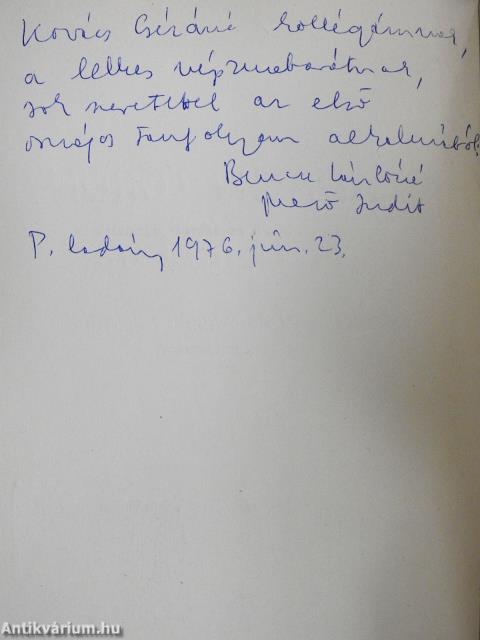 Kovács Gézáné kollégámnak,
a lelkes népzenebarátnak,
sok szeretettel az első
országos tanfolyam alkalmából
Bencze Lászlóné
Mező Judit
P. ladány 1976. jún. 23.
Antikvárium.hu